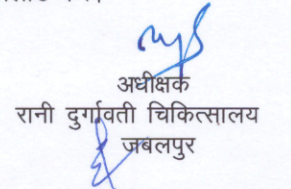 अधीक्षक
रानी दुर्गावती चिकित्सालय
जबलपुर